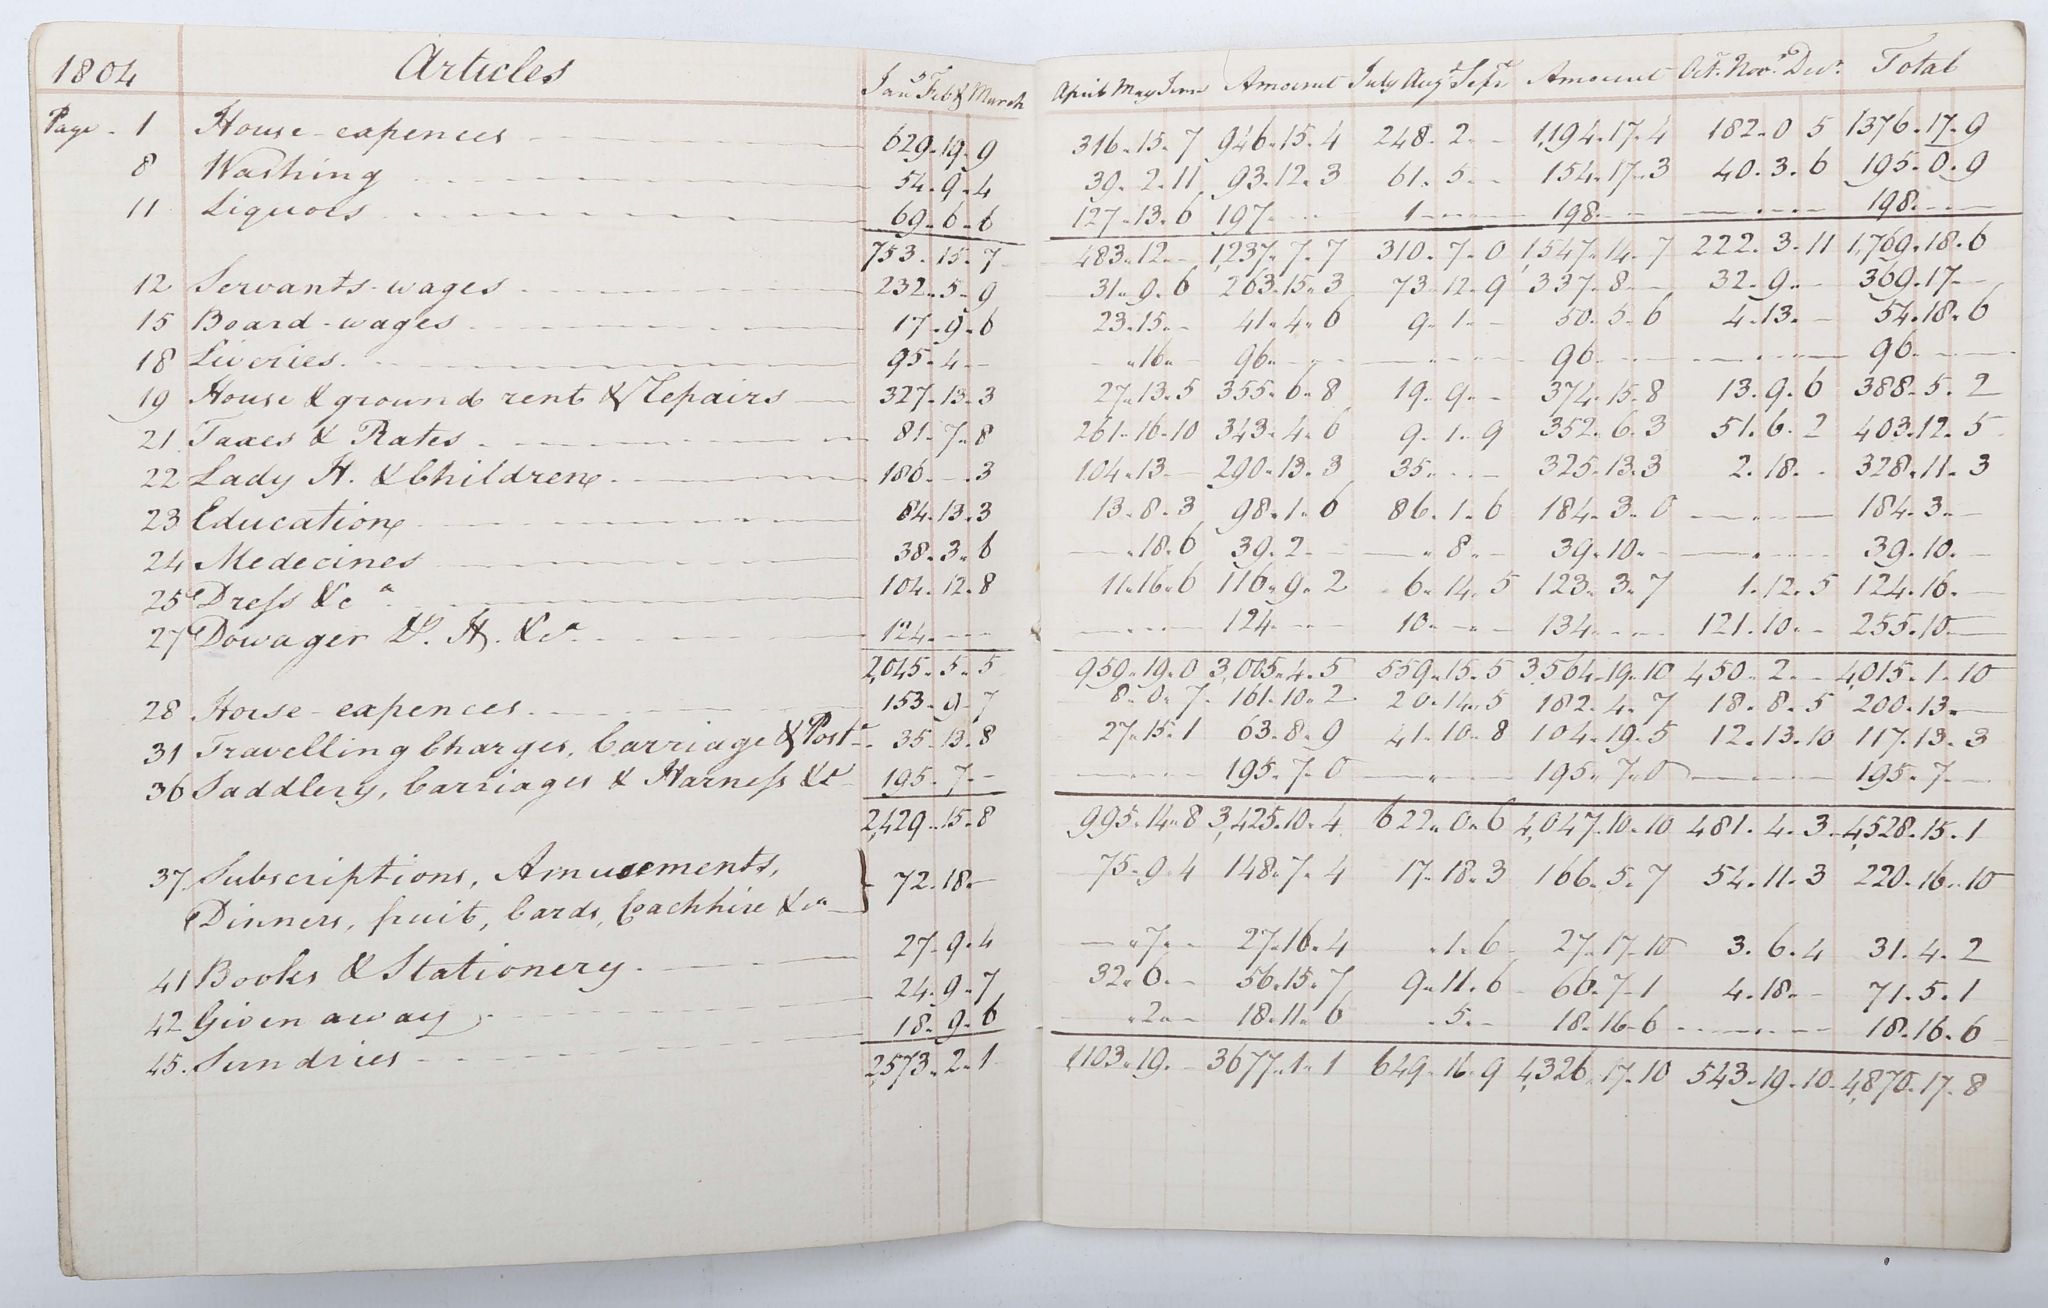 1804 Articles Jany Feby & March April May June Amount July Augt Sepr Amount Octr Novr Decr Total
Page - 1 House-expences 629.19.9 316.15.7 946.15.4 248.2.- 1,194.17.4 182.0.5 1376.17.9
8 Washing 54.9.4 39.2.11 93.12.3 61.5.- 154.17.3 40.3.6 195.0.9
11 Liquors 69.6.6 127.13.6 197.-.- 1.-.- 198.-.- -.-.- 198.-.-
753.15.7 483.12.- 1,237.7.7 310.7.0 1,547.14.7 222.3.11 1,769.18.6
12 Servants-wages 232.5.9 31.9.6 263.15.3 73.12.9 337.8.- 32.9.- 369.17.-
15 Board-wages 17.9.6 23.15.- 41.4.6 9.1.- 50.5.6 4.13.- 54.18.6
18 Liveries 95.4.- -.16.- 96.-.- -.-.- 96.-.- -.-.- 96.-.-
19 House & ground rent & Repairs 327.13.3 27.13.5 355.6.8 19.9.- 374.15.8 13.9.6 388.5.2
21 Taxes & Rates 81.7.8 261.16.10 343.4.6 9.1.9 352.6.3 51.6.2 403.12.5
22 Lady H. & Children 186.-.3 104.13.- 290.13.3 35.-.- 325.13.3 2.18.- 328.11.3
23 Education 84.13.3 13.8.3 98.1.6 86.1.6 184.3.0 -.-.- 184.3.-
24 Medecines 38.3.6 -.18.6 39.2.- -.8.- 39.10.- -.-.- 39.10.-
25 Dress &ca 104.12.8 11.16.6 116.9.2 6.14.5 123.3.7 1.12.5 124.16.-
27 Dowager Ly. H. &ca 124.-.- -.-.- 124.-.- 10.-.- 134.-.- 121.10.- 255.10.-
2,045.5.5 959.19.0 3,005.4.5 559.15.5 3,564.19.10 450.2.- 4,015.1.10
28 Horse-expences 153.9.7 8.0.7 161.10.2 20.14.5 182.4.7 18.8.5 200.13.-
31 Travelling Charges, Carriage & Poste 35.13.8 27.15.1 63.8.9 41.10.8 104.19.5 12.13.10 117.13.3
36 Saddlery, Carriages & Harness &c 195.7.- -.-.- 195.7.0 -.-.- 195.7.0 -.-.- 195.7.-
2,429.15.8 995.14.8 3,425.10.4 622.0.6 4,047.10.10 481.4.3 4,528.15.1
37 Subscriptions, Amusements, 72.18.- 75.9.4 148.7.4 17.18.3 166.5.7 54.11.3 220.16.10
Dinners, fruit, Cards, Coachhire &ca
41 Books & Stationery 27.9.4 -.7.- 27.16.4 -.1.6 27.17.10 3.6.4 31.4.2
42 Given away 24.9.7 32.6.- 56.15.7 9.11.6 66.7.1 4.18.- 71.5.1
45. Sundries 18.9.6 -.2.- 18.11.6 -.5.- 18.16.6 -.-.- 18.16.6
2,573.2.1 1,103.19.- 3677.1.1 649.16.9 4,326.17.10 543.19.10 4,870.17.8